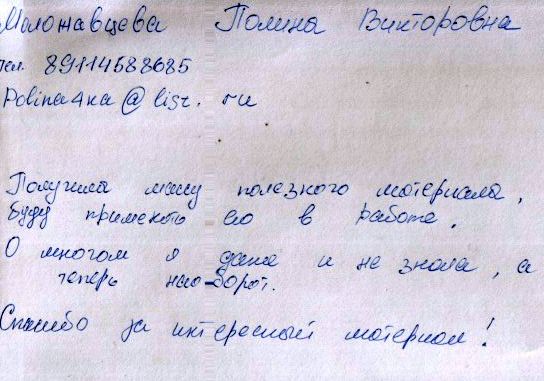 Моложавцева Полина Викторовна
тел. 89114588685
Polina4ka@list.ru
Получила массу полезного материала,
буду применять его в работе.
О многом я даже и не знала, а
теперь наоборот.
Спасибо за интересный материал!